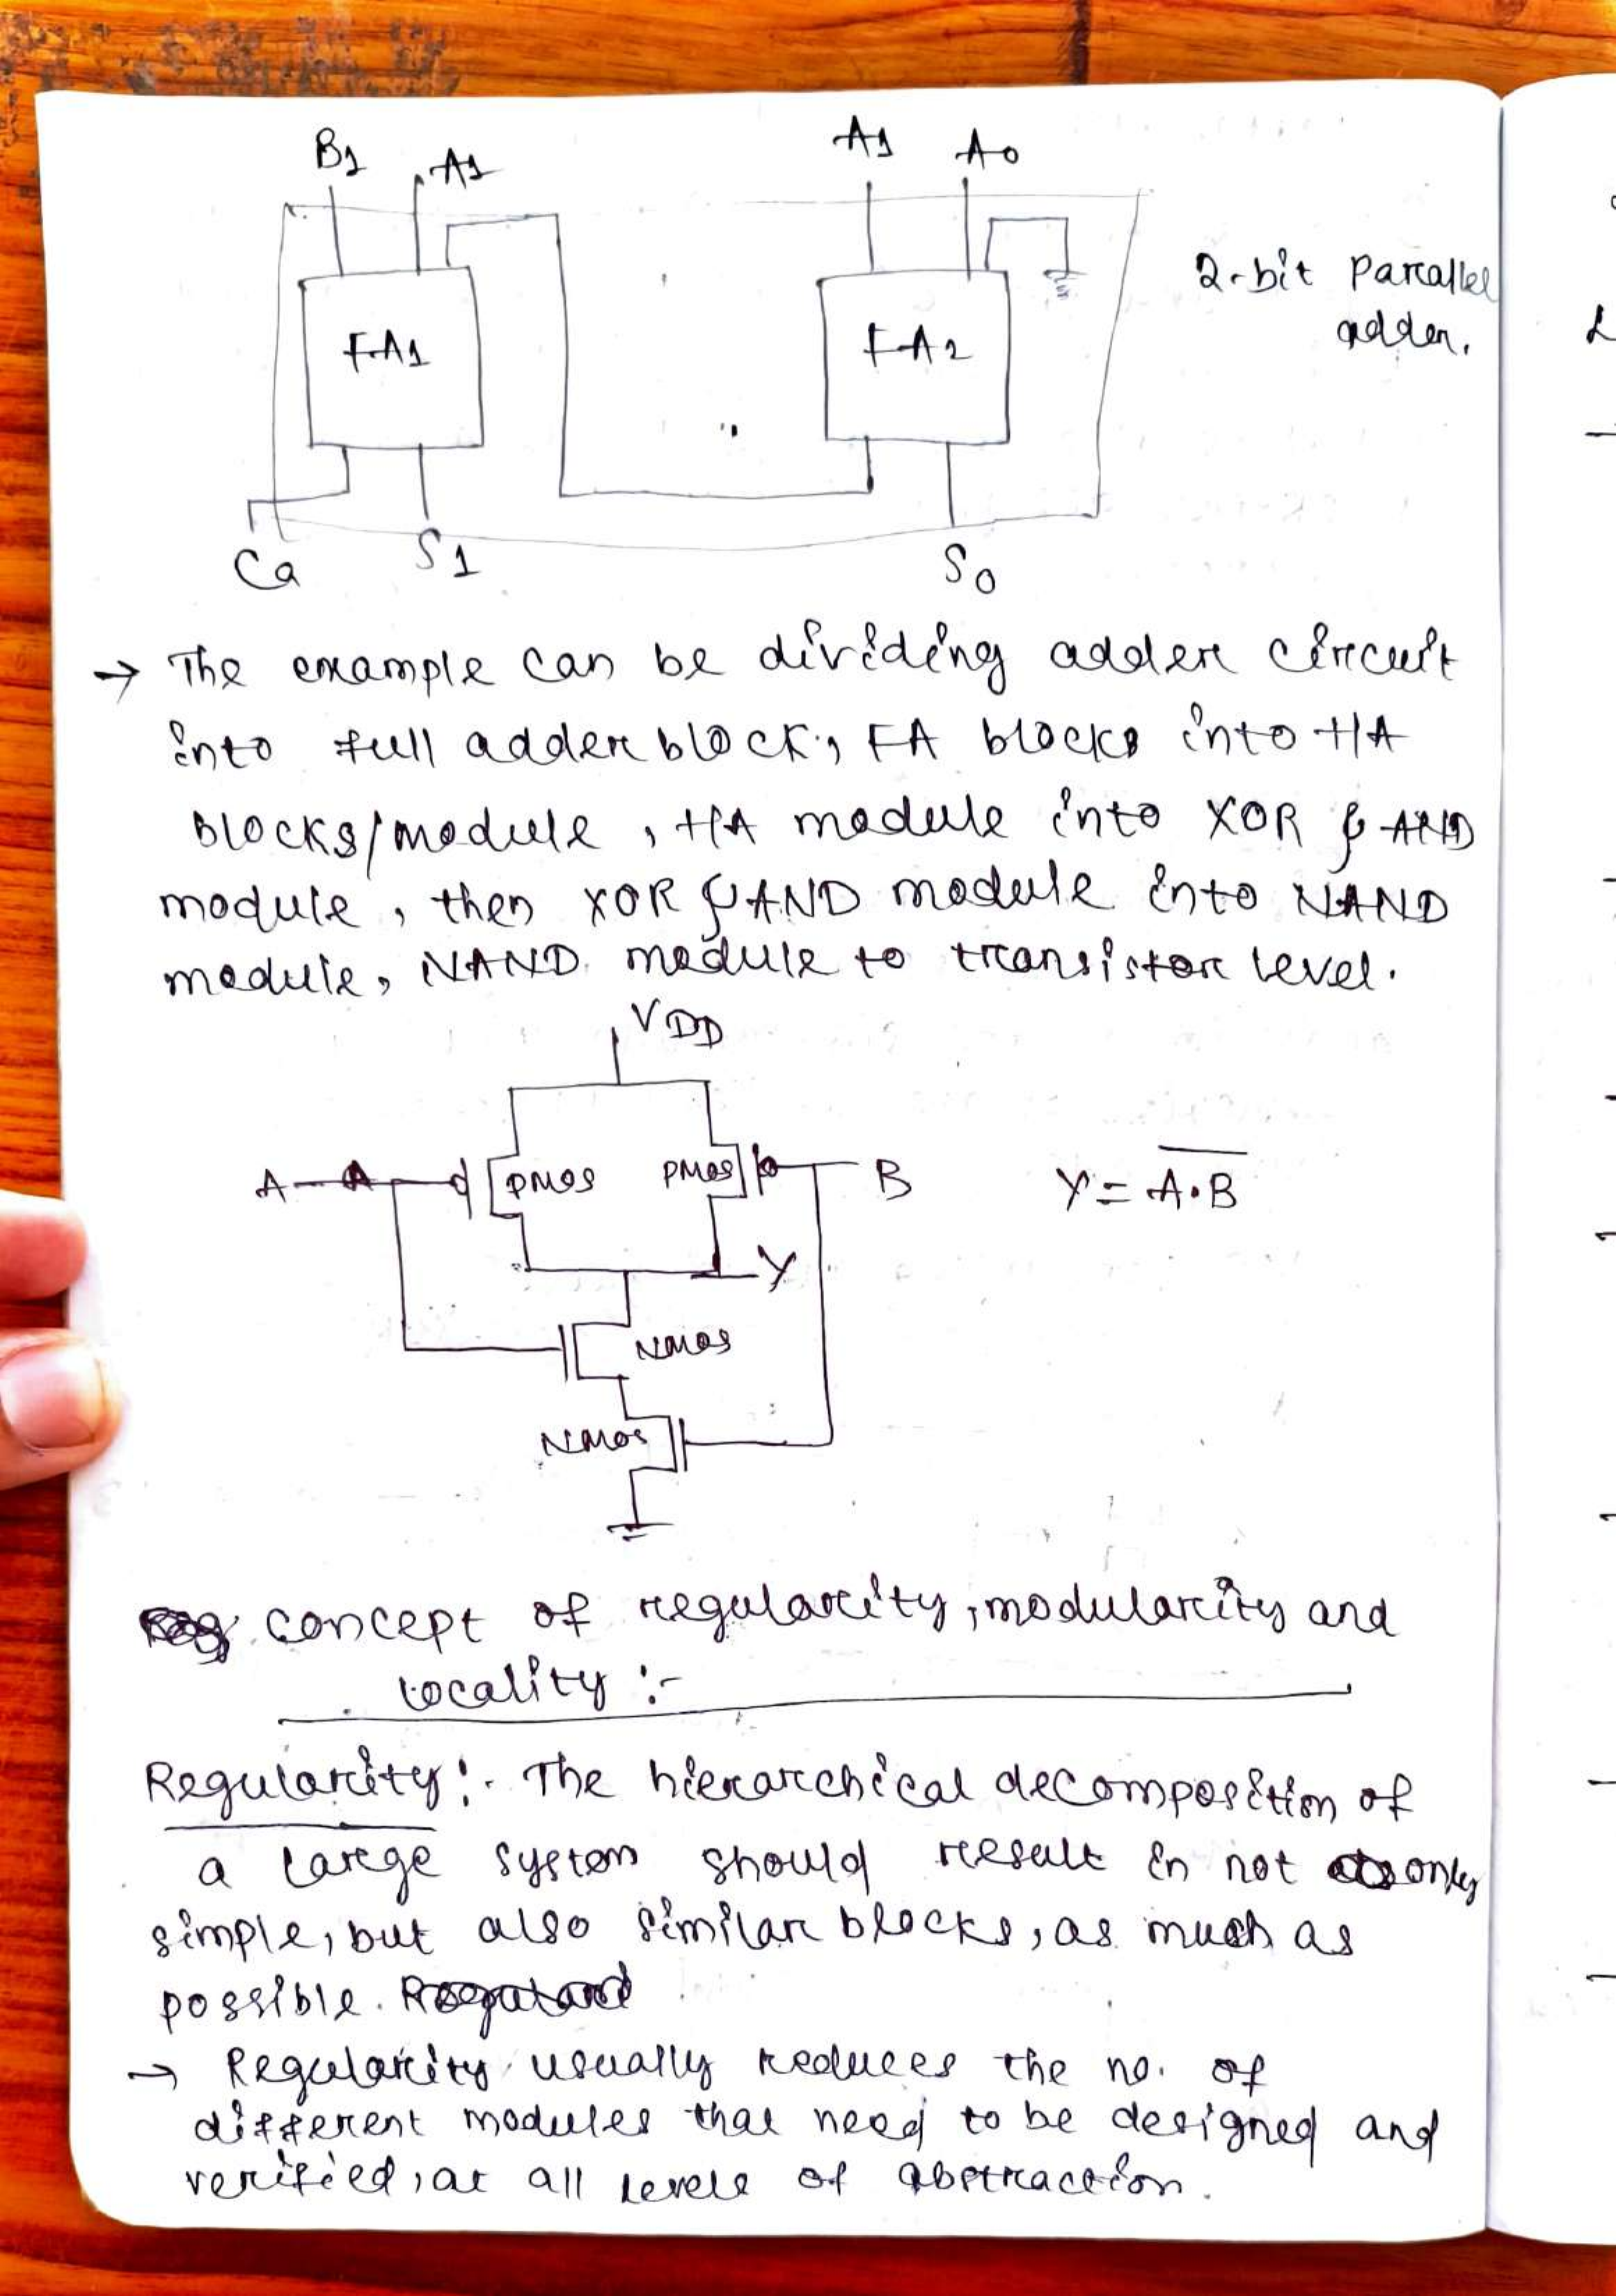 B1 A1 A1 A0
FA1 FA2
2-bit Parallel
adder.
Ca S1 S0
→ The example can be dividing adder circuit
into full adder block, FA blocks into HA
blocks/module, HA module into XOR & AND
module, then XOR & AND module into NAND
module, NAND module to transistor level.
VDD
A PMOS PMOS B Y = A·B
Y
NMOS
NMOS
concept of regularity, modularity and
locality :-
Regularity:- The hierarchical decomposition of
a large system should result in not only
simple, but also similar blocks, as much as
possible.
→ Regularity usually reduces the no. of
different modules that need to be designed and
verified, at all levels of abstraction.